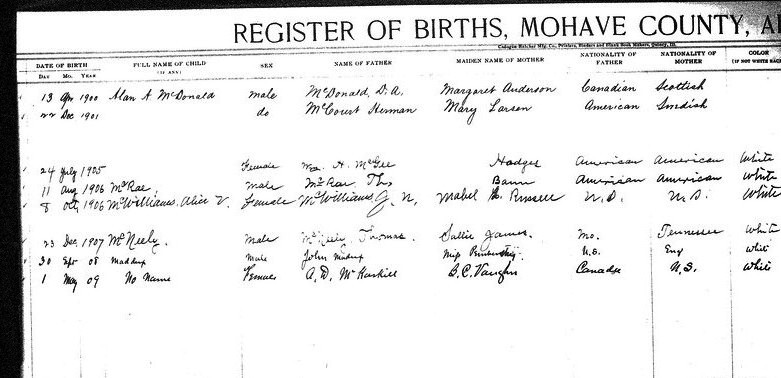 REGISTER OF BIRTHS, MOHAVE COUNTY, A
DATE OF BIRTH FULL NAME OF CHILD (IF ANY) SEX NAME OF FATHER MAIDEN NAME OF MOTHER NATIONALITY OF FATHER NATIONALITY OF MOTHER COLOR
DAY MO. YEAR
13 Apr 1900 Alan A. McDonald male McDonald, D. A. Margaret Anderson Canadian Scottish
22 Dec 1901 do McCourt Herman Mary Larson American Swedish
24 July 1905 Female Wm. H. McGee Hodges American American White
11 Aug 1906 McRae, male McRae, Thos American American White
8 Oct 1906 McWilliams, Alice V. Female McWilliams, J. N. Mabel Russell U.S. U.S. White
23 Dec 1907 McNeely. male McNeely, Thomas. Sallie James. Mo. Tennessee White
30 08 Maddux Male John Maddux Miss U.S. Eng White
1 May 09 No Name Female A. D. McKaskill B. C. Vaughn Canada U.S. White